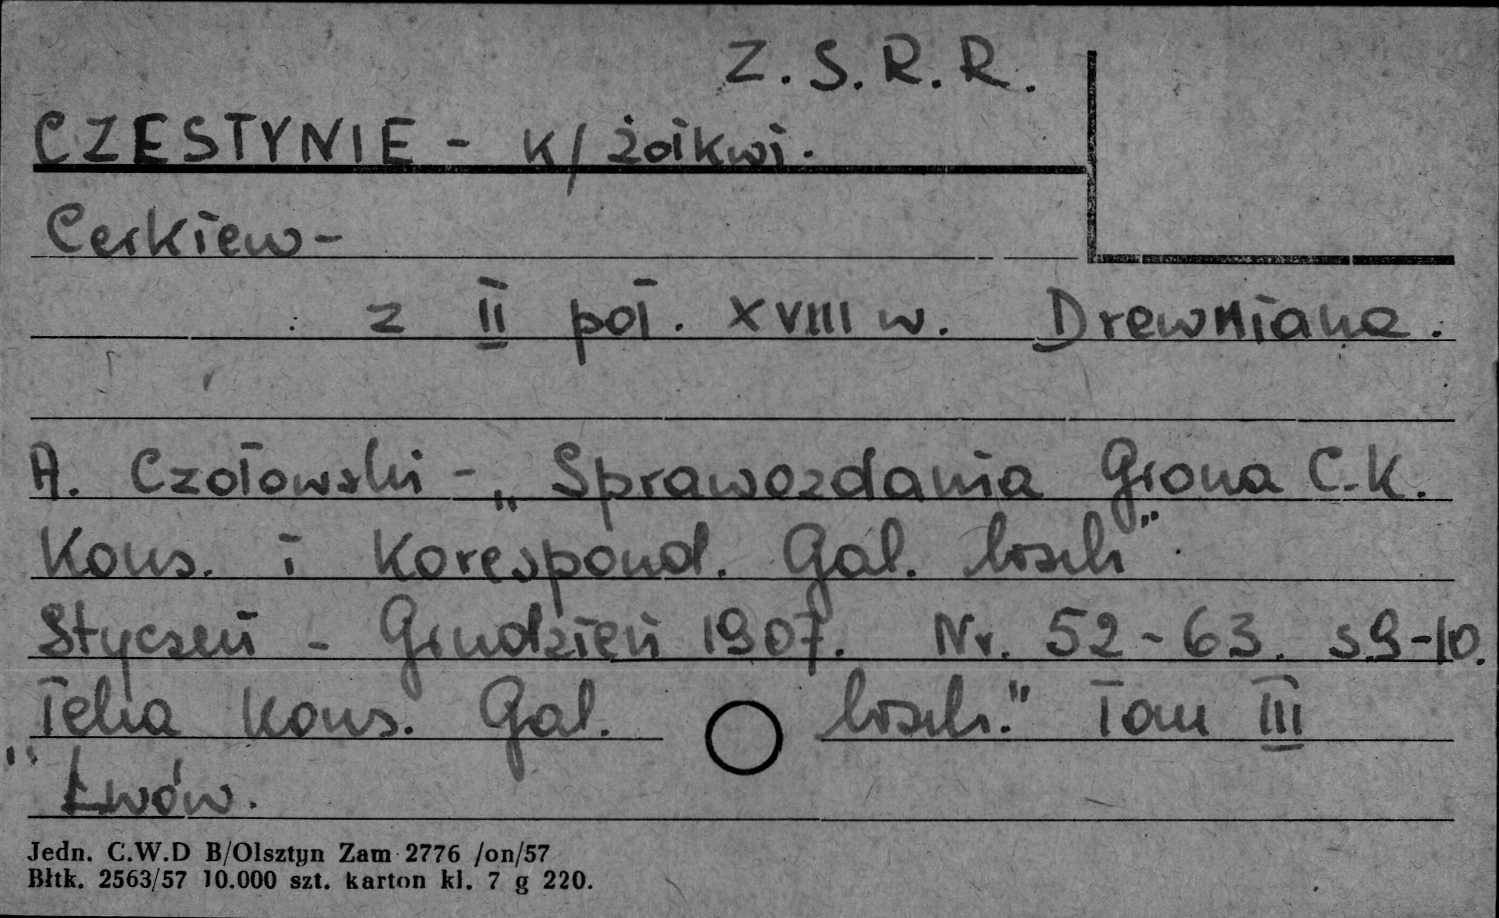 Z.S.R.R.
CZESTYNIE - k/żółkwi.
Cerkiew -
z II poł. XVIII w. Drewniana.
A. Czołowski - „Sprawozdania Grona C.K.
Kons. i Korespond. Gal. wsch".
Styczeń - Grudzień 1907. Nr. 52-63. s9-10.
"Teka Kons. Gal. wsch." Tom III
Lwów.
Jedn. C.W.D B/Olsztyn Zam 2776 /on/57
Błtk. 2563/57 10.000 szt. karton kl. 7 g 220.